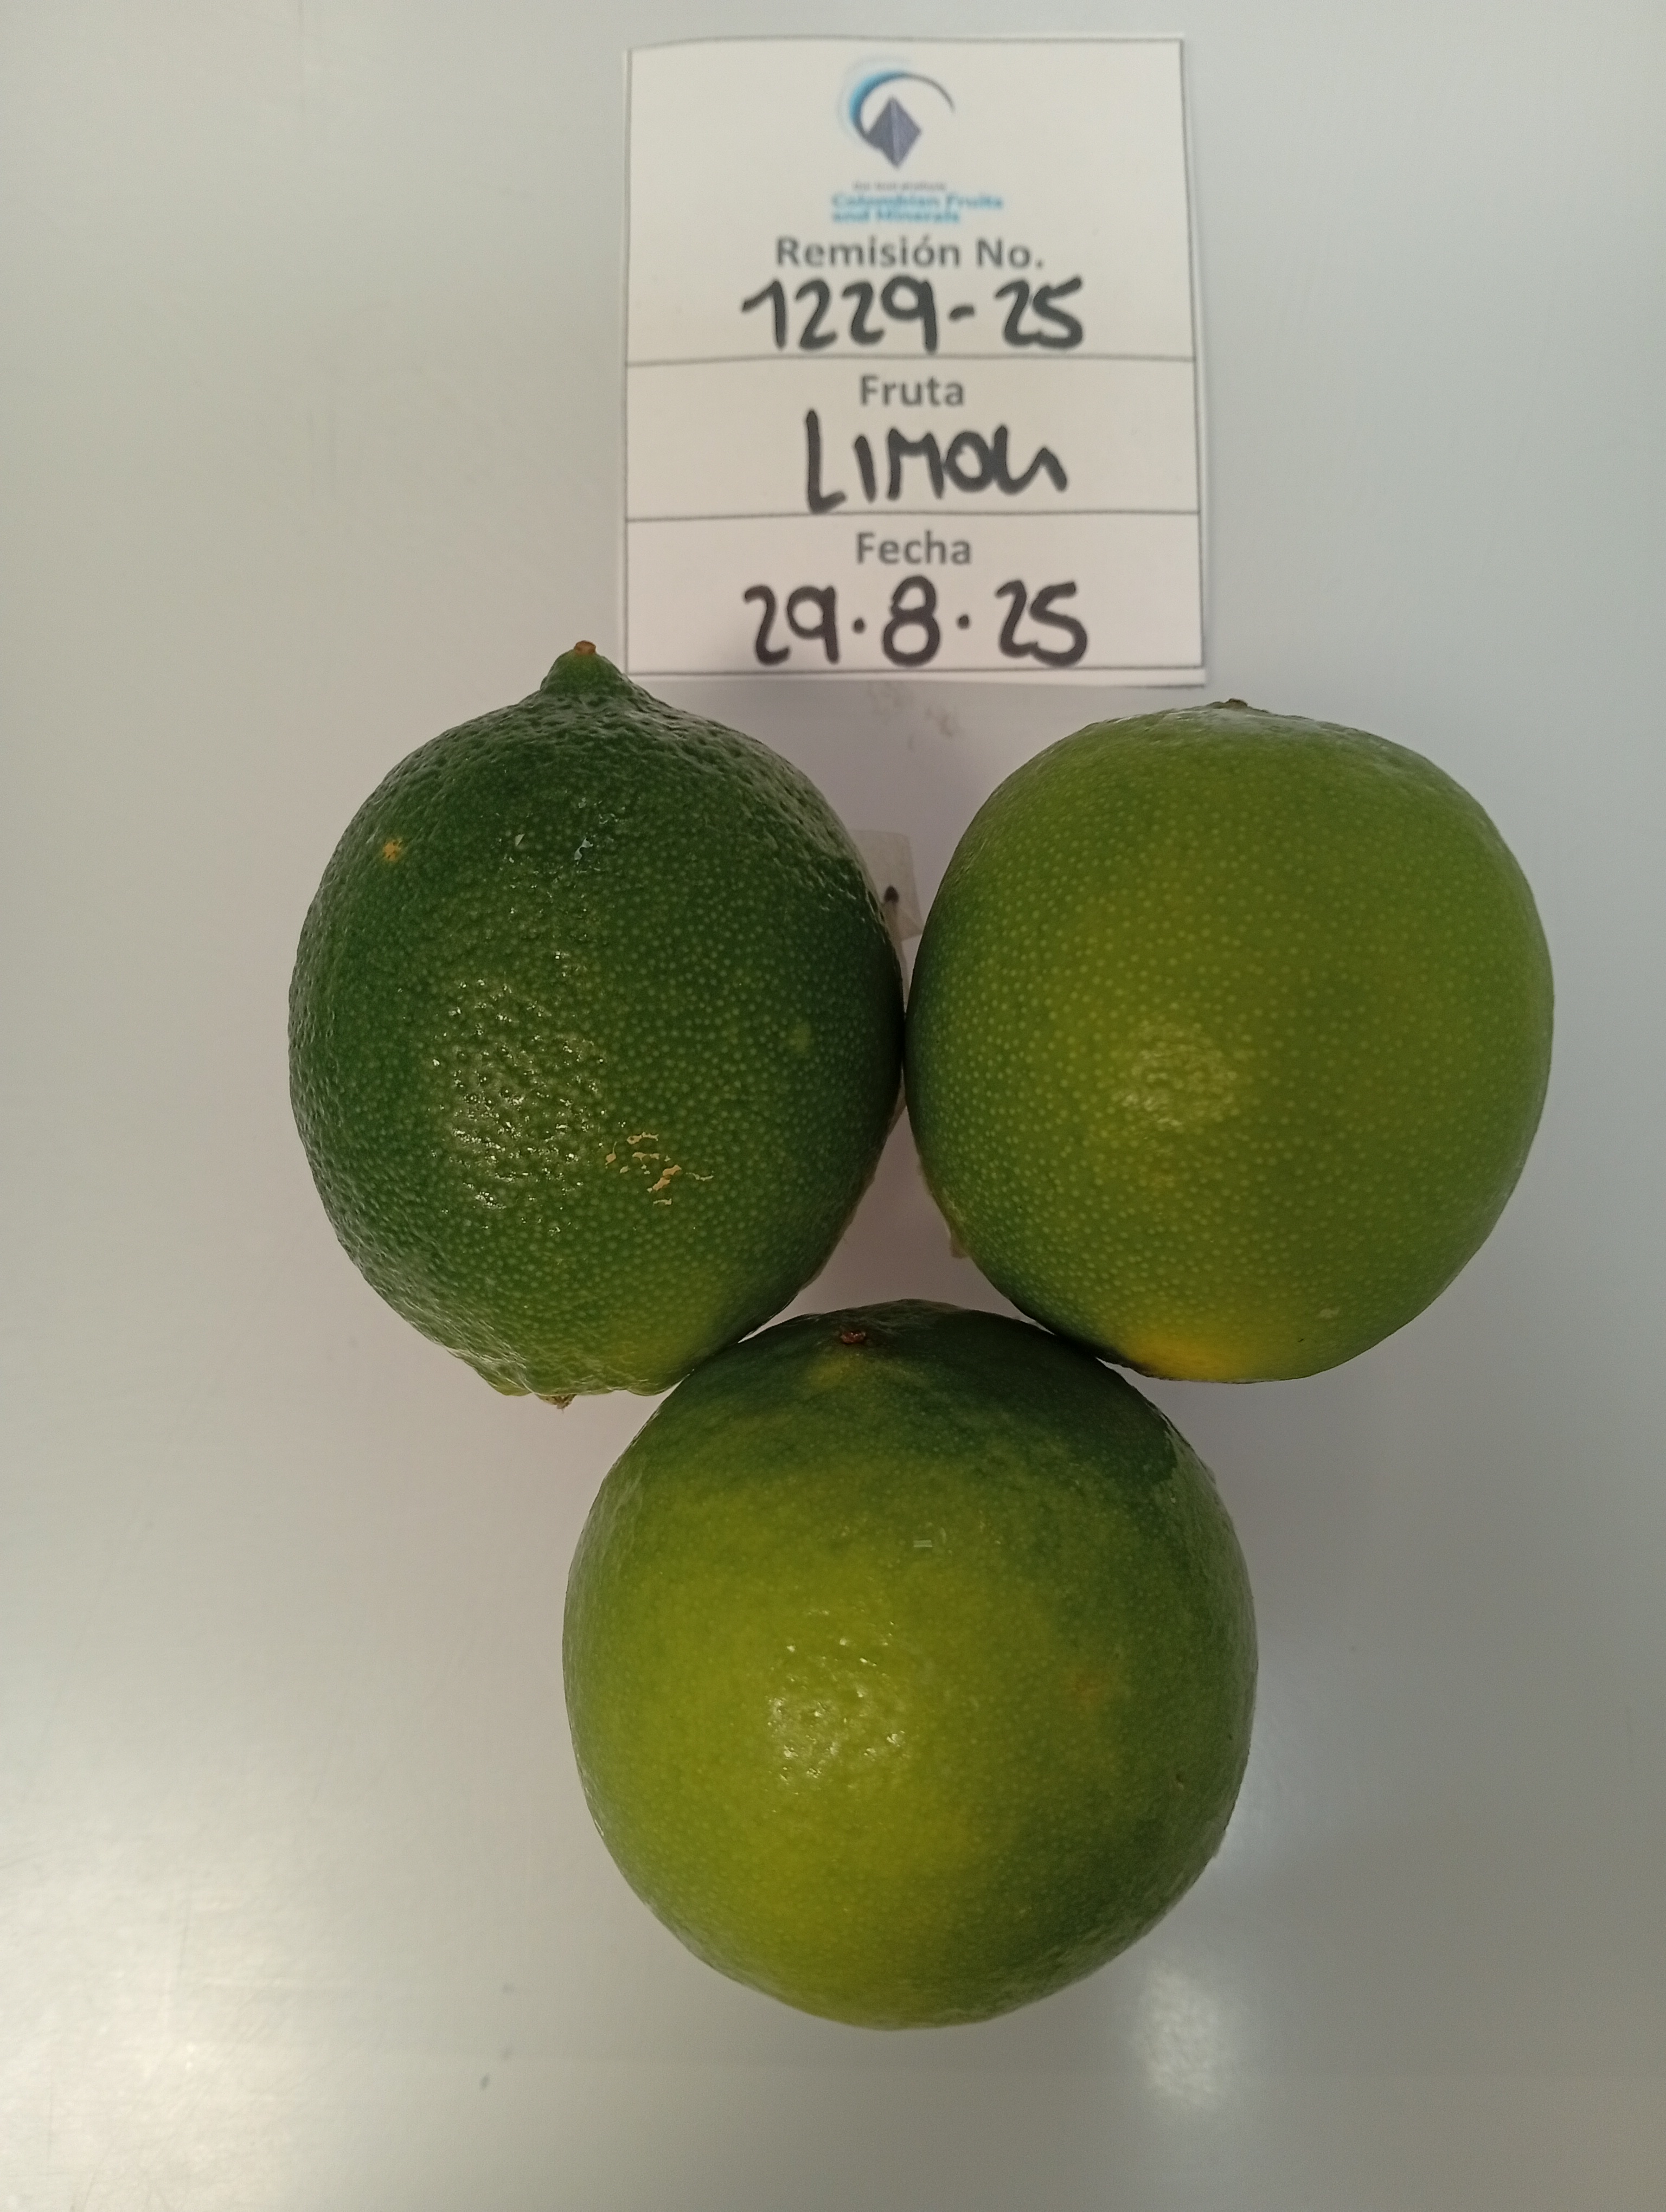 Colombian Fruits
and Minerals
Remisión No.
1229-25
Fruta
LIMON
Fecha
29.8.25